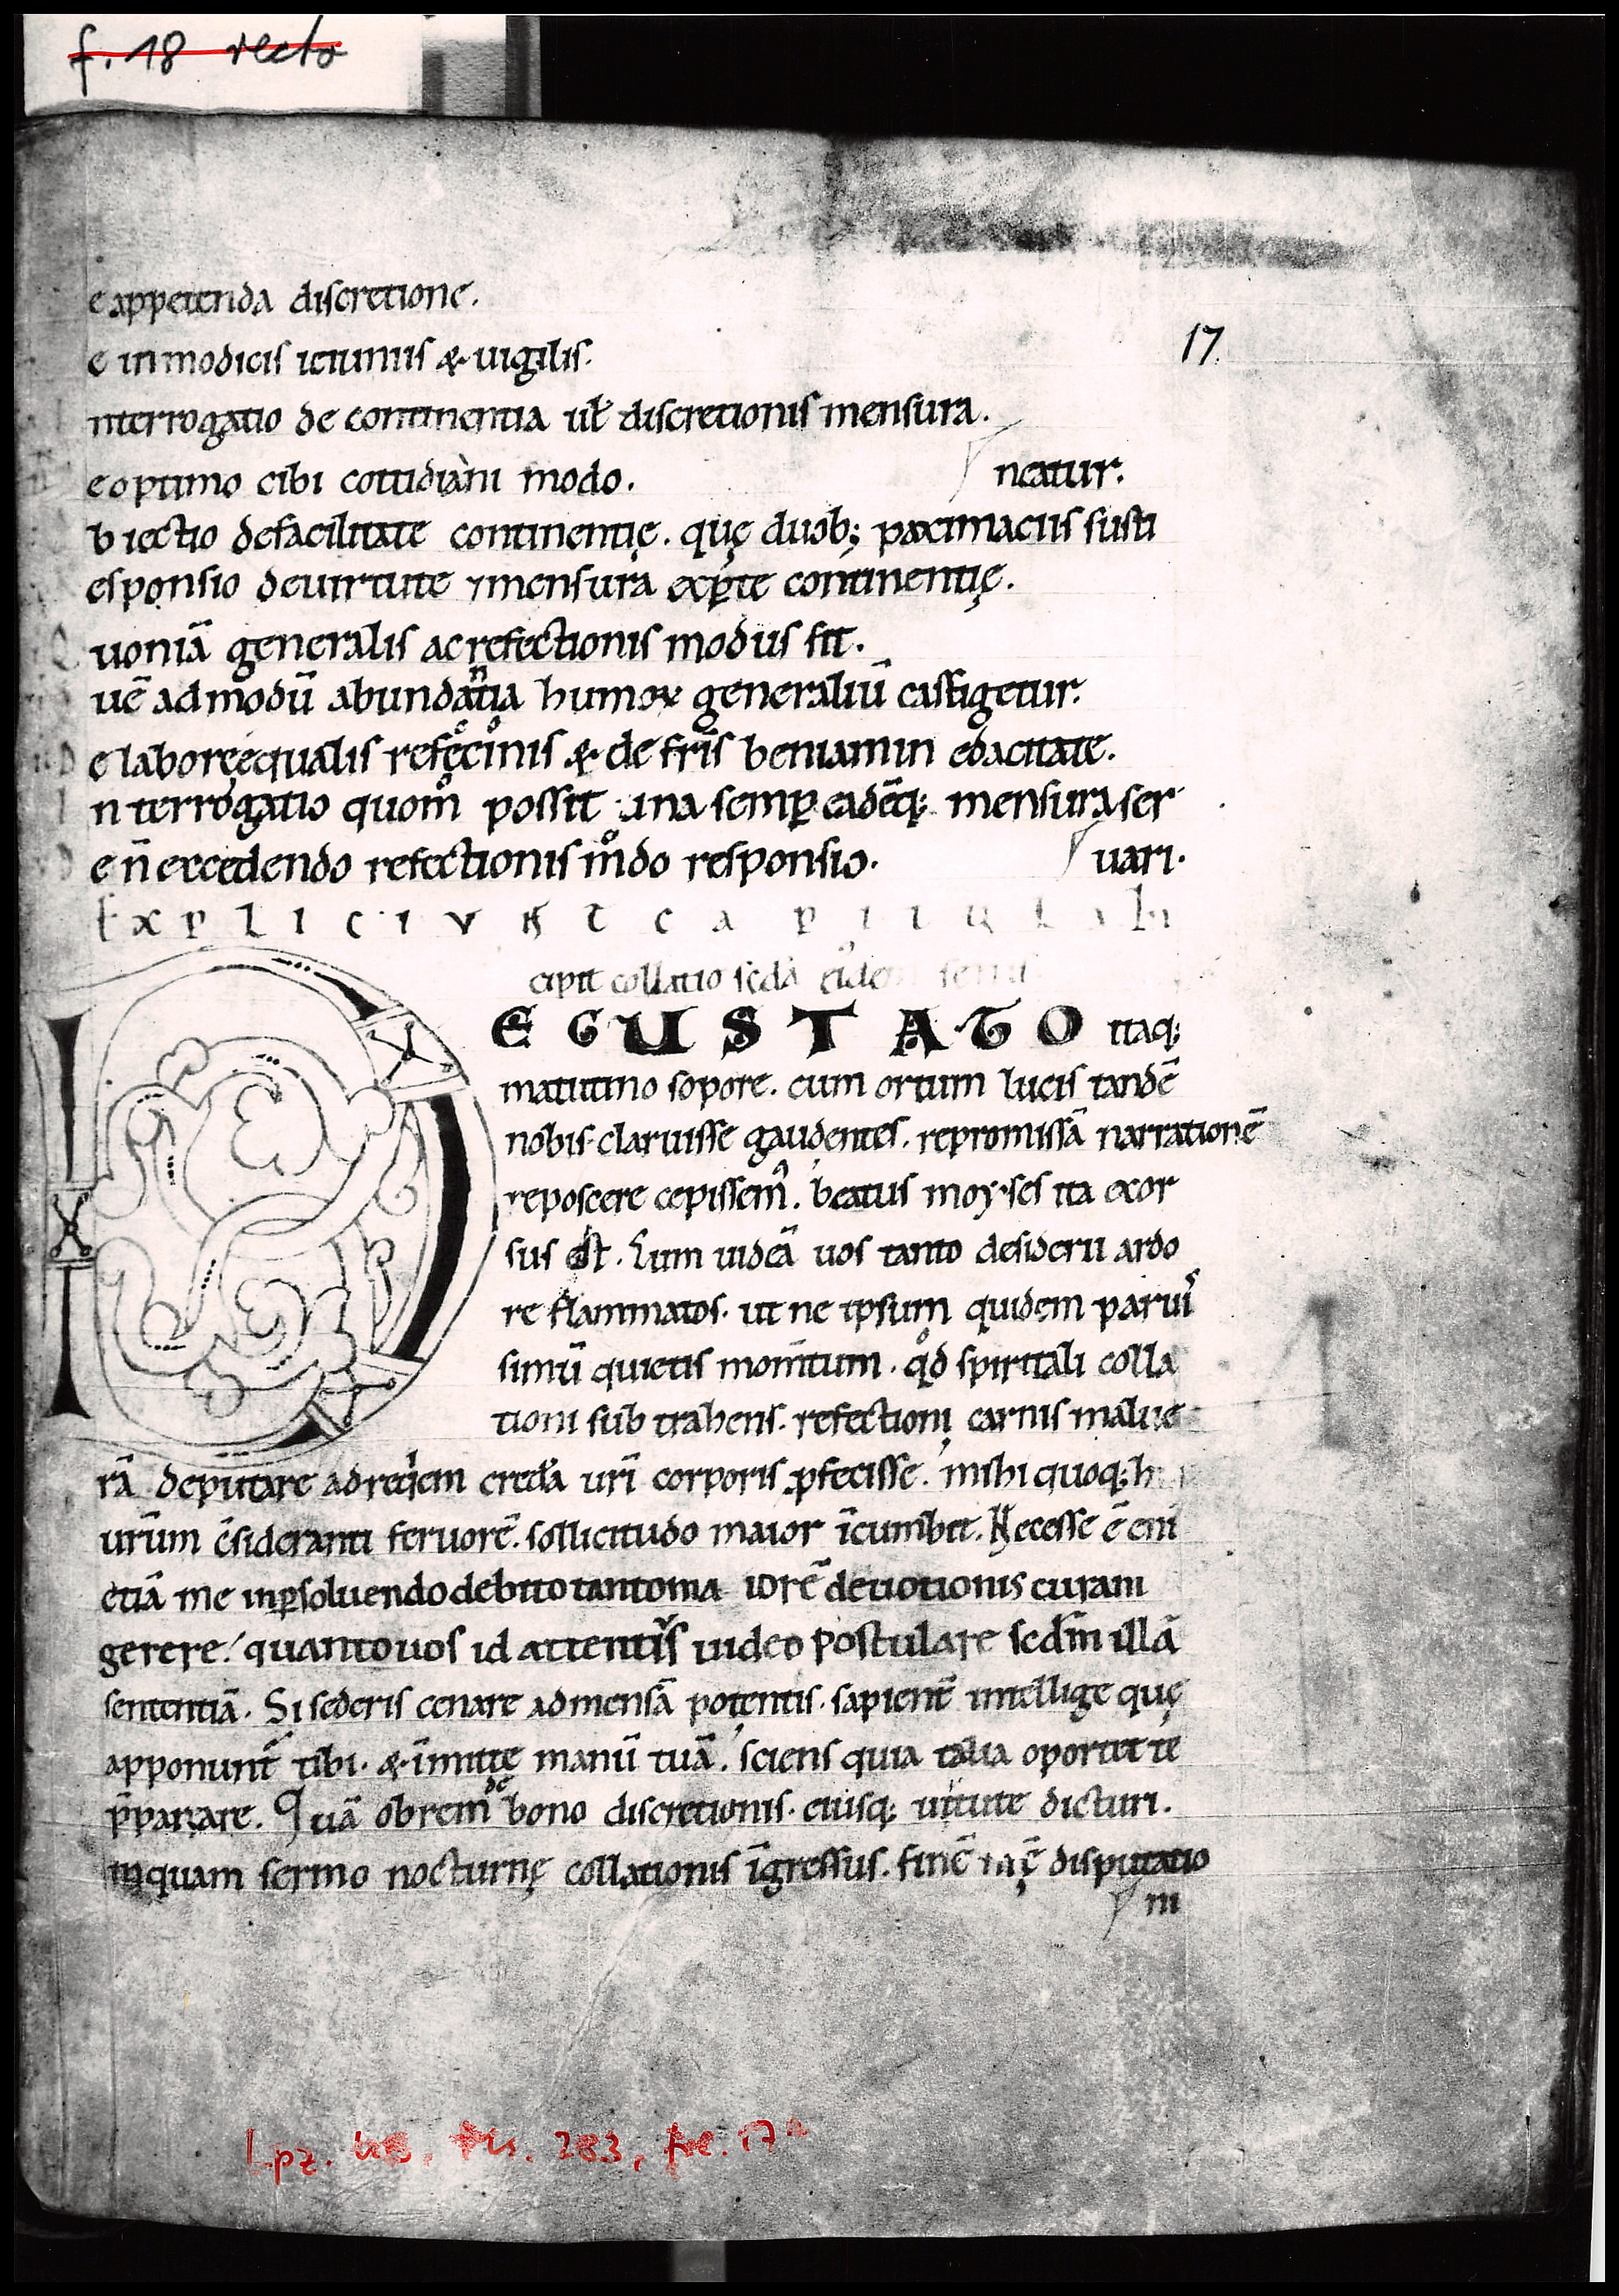 f. 18 recto
17
e appetenda discretione.
e inmodicis ieiuniis & uigiliis.
nterrogatio de continentia ul̃ discretionis mensura.
e optimo cibi cottidiani modo.
neatur.
b iectio defacilitate continentię. quę duob; paximaciis susti
esponsio deuirtute ⁊ mensura exꝑte continentię.
uoniã generalis ac refectionis modus sit.
uẽ admodũ abundantia humoꝝ generaliũ castigetur.
e labore ęqualis refęctiõnis & de fr̃is beniamin edacitate.
nterrogatio quom̊ possit una semꝑ eadẽq; mensura ser
e ñ excedendo refectionis m̊do responsio.
uari.
Explicivnt capitula
cipit collatio sc̃da
EGUSTATO itaq;
matutino sopore. cum ortum lucis tandẽ
nobis claruisse gaudentes. repromissã narrationẽ
reposcere cepissem᷒. beatus moyses ita exor
sus est. Cum uideã uos tanto desiderii ardo
re flammatos. ut ne ipsum quidem parui
simũ quietis mom̃tum. qd̊ spiritali colla
tioni sub trahens. refectioni carnis malue
rã deputare adreqⁱem creda ur̃i corporis ꝓfecisse. mihi quoq; h
ur̃um c̃sideranti feruorẽ. sollicitudo maior ĩcumbit. Necesse ẽ eni
etiã me inꝑsoluendo debito tanto ma iorẽ deuotionis curam
gerere. quanto uos id attentiꝰs uideo postulare scd̃m illã
sententiã. Si sederis cenare admensã potentis. sapient̃ intellige quę
apponunt̃ tibi. & ĩmitte manũ tuã. sciens quia talia oportet te
p̃parare. Quã obrem de bono discretionis. eiusq; uirtute dicturi.
inquam sermo nocturnę collationis ĩgressus. finẽ disputatio
ni
Lpz. UB, Hs. 283, fol. 17ᵃ